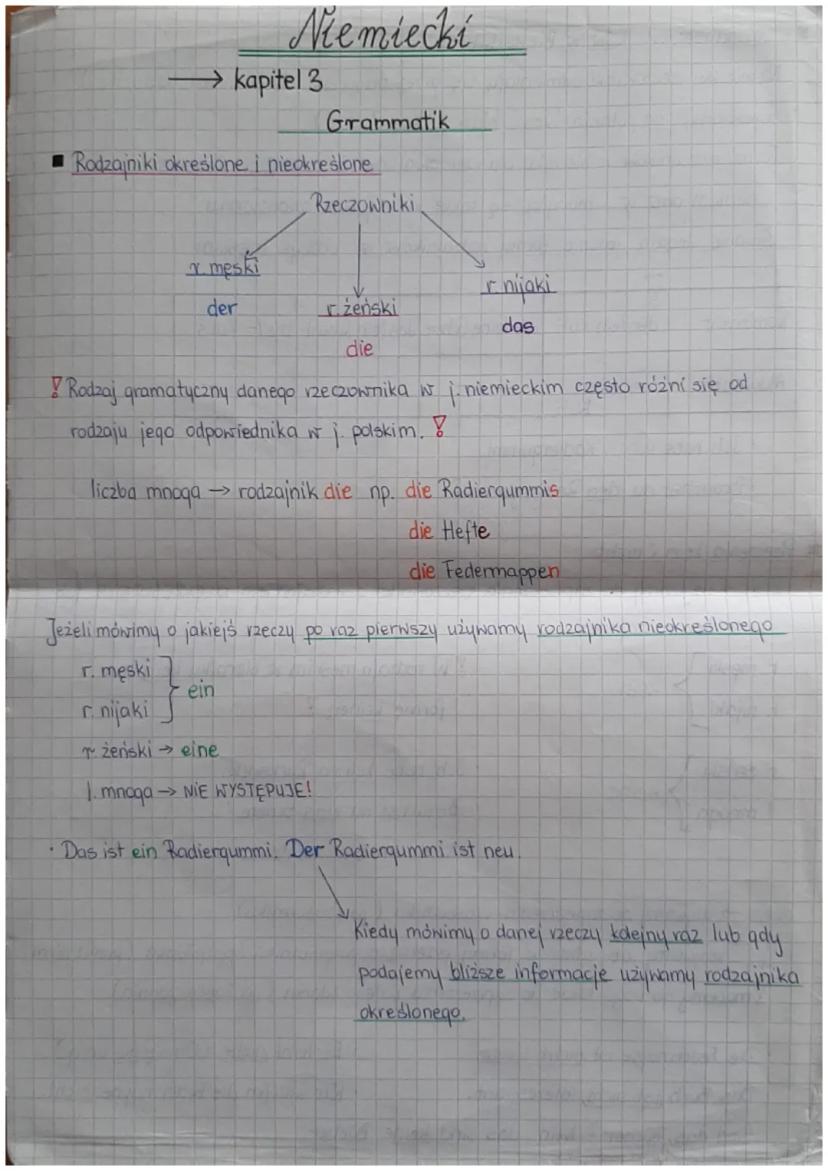 Niemiecki
→ kapitel 3
Grammatik
▪ Rodzajniki określone i nieokreślone
Rzeczowniki
r. męski
r. żeński
r. nijaki
der
die
das
! Rodzaj gramatyczny danego rzeczownika w j. niemieckim często różni się od
rodzaju jego odpowiednika w j. polskim. !
liczba mnoga → rodzajnik die np. die Radiergummis
die Hefte
die Federmappen
Jeżeli mówimy o jakiejś rzeczy po raz pierwszy używamy rodzajnika nieokreślonego
r. męski
r. nijaki
ein
r. żeński → eine
l. mnoga → NIE WYSTĘPUJE!
· Das ist ein Radiergummi. Der Radiergummi ist neu.
Kiedy mówimy o danej rzeczy kolejny raz lub gdy
podajemy bliższe informacje używamy rodzajnika
określonego.